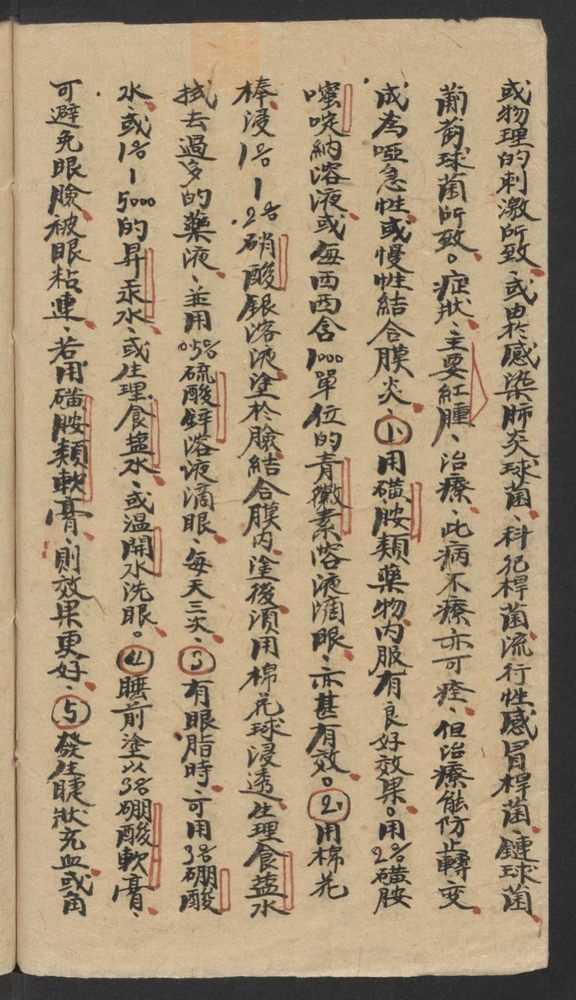 或物理的刺激所致、或由於感染肺炎球菌、科死桿菌流行性感冒桿菌、鏈球菌、
葡萄球菌所致。症狀、主要紅腫、治療、此病不療亦可痊、但治療能防止轉変
成為啞急性、或慢性結合膜炎、①用磺胺類藥物内服有良好效果。用2%磺胺
嘧啶納溶液、或每西西含1000單位的青黴素溶液滴眼、亦甚有效。②用棉花
棒浸1%—.2%硝酸銀溶液塗於臉結合膜内、塗後須用棉花球浸透生理食盐水
拭去過多的藥液、並用0.5%硫酸鋅溶液滴眼、每天三次、③有眼脂時、可用3%硼酸
水、或1%—5000的昇汞水、或生理食盐水、或温開水洗眼。④睡前塗以3%硼酸軟膏、
可避免眼臉被眼粘連、若用磺胺類軟膏、則效果更好、⑤發生睫狀充血或角